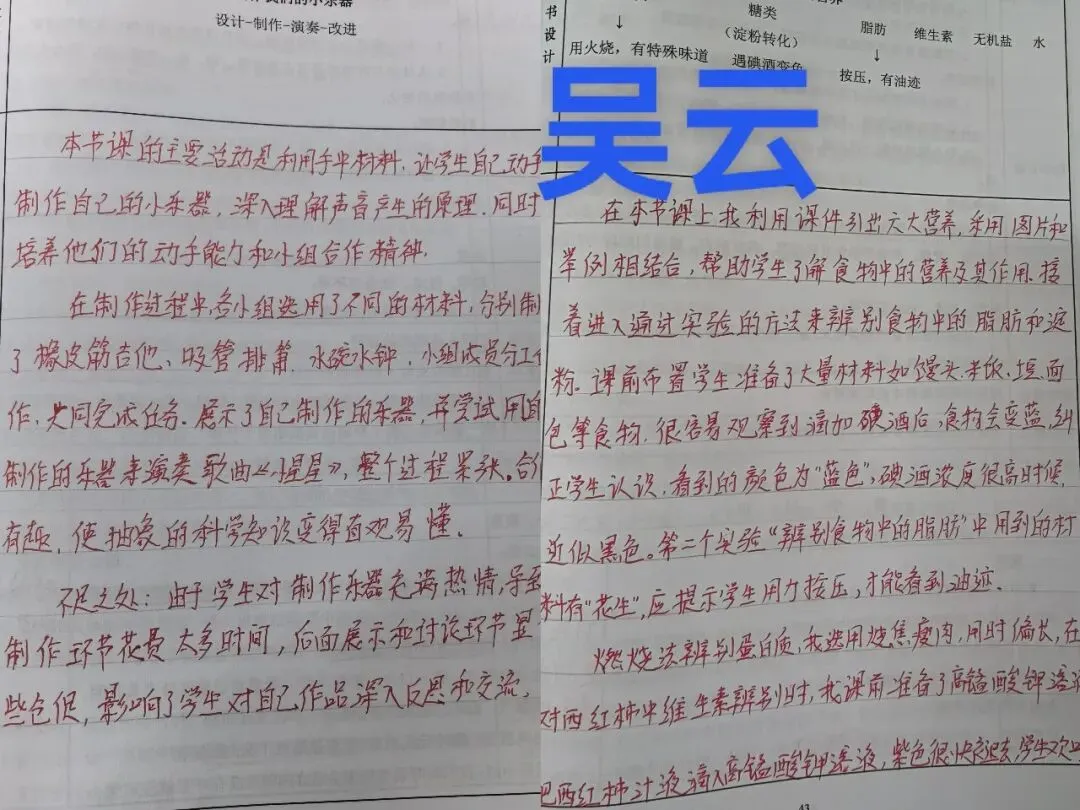 我们的小乐器
设计-制作-演奏-改进
本节课的主要活动是利用手中材料,让学生自己动手
制作自己的小乐器,深入理解声音产生的原理.同时
培养他们的动手能力和小组合作精神.
在制作过程中,各小组选用了不同的材料,分别制
了橡皮筋吉他、吸管排箫、水碗水钟.小组成员分工
作,共同完成任务.展示了自己制作的乐器,并尝试用自
制作的乐器来演奏歌曲《小星星》,整个过程紧张.合作
有趣,使抽象的科学知识变得直观易懂.
不足之处:由于学生对制作乐器充满热情,导致
制作环节花费太多时间,后面展示和讨论环节显
些仓促,影响了学生对自己作品深入反思和交流.
书设计
糖类
(淀粉转化)
脂肪 维生素 无机盐 水
↓ ↓
用火烧,有特殊味道 遇碘酒变色 按压,有油迹
吴云
在本节课上我利用课件引出六大营养,采用图片和
举例相结合,帮助学生了解食物中的营养及其作用.接
着进入通过实验的方法来辨别食物中的脂肪和淀
粉.课前布置学生准备了大量材料如馒头.米饭.土豆.面
包等食物.很容易观察到滴加碘酒后,食物会变蓝,纠
正学生认识,看到的颜色为"蓝色",碘酒浓度很高时候,
近似黑色。第二个实验"辨别食物中的脂肪"中用到的材
料有"花生",应提示学生用力按压,才能看到油迹.
燃烧法辨别蛋白质,我选用烧焦瘦肉,用时偏长,在
对西红柿中维生素辨别时,我课前准备了高锰酸钾溶液
把西红柿汁液滴入高锰酸钾溶液,紫色很快褪去,学生欢
43